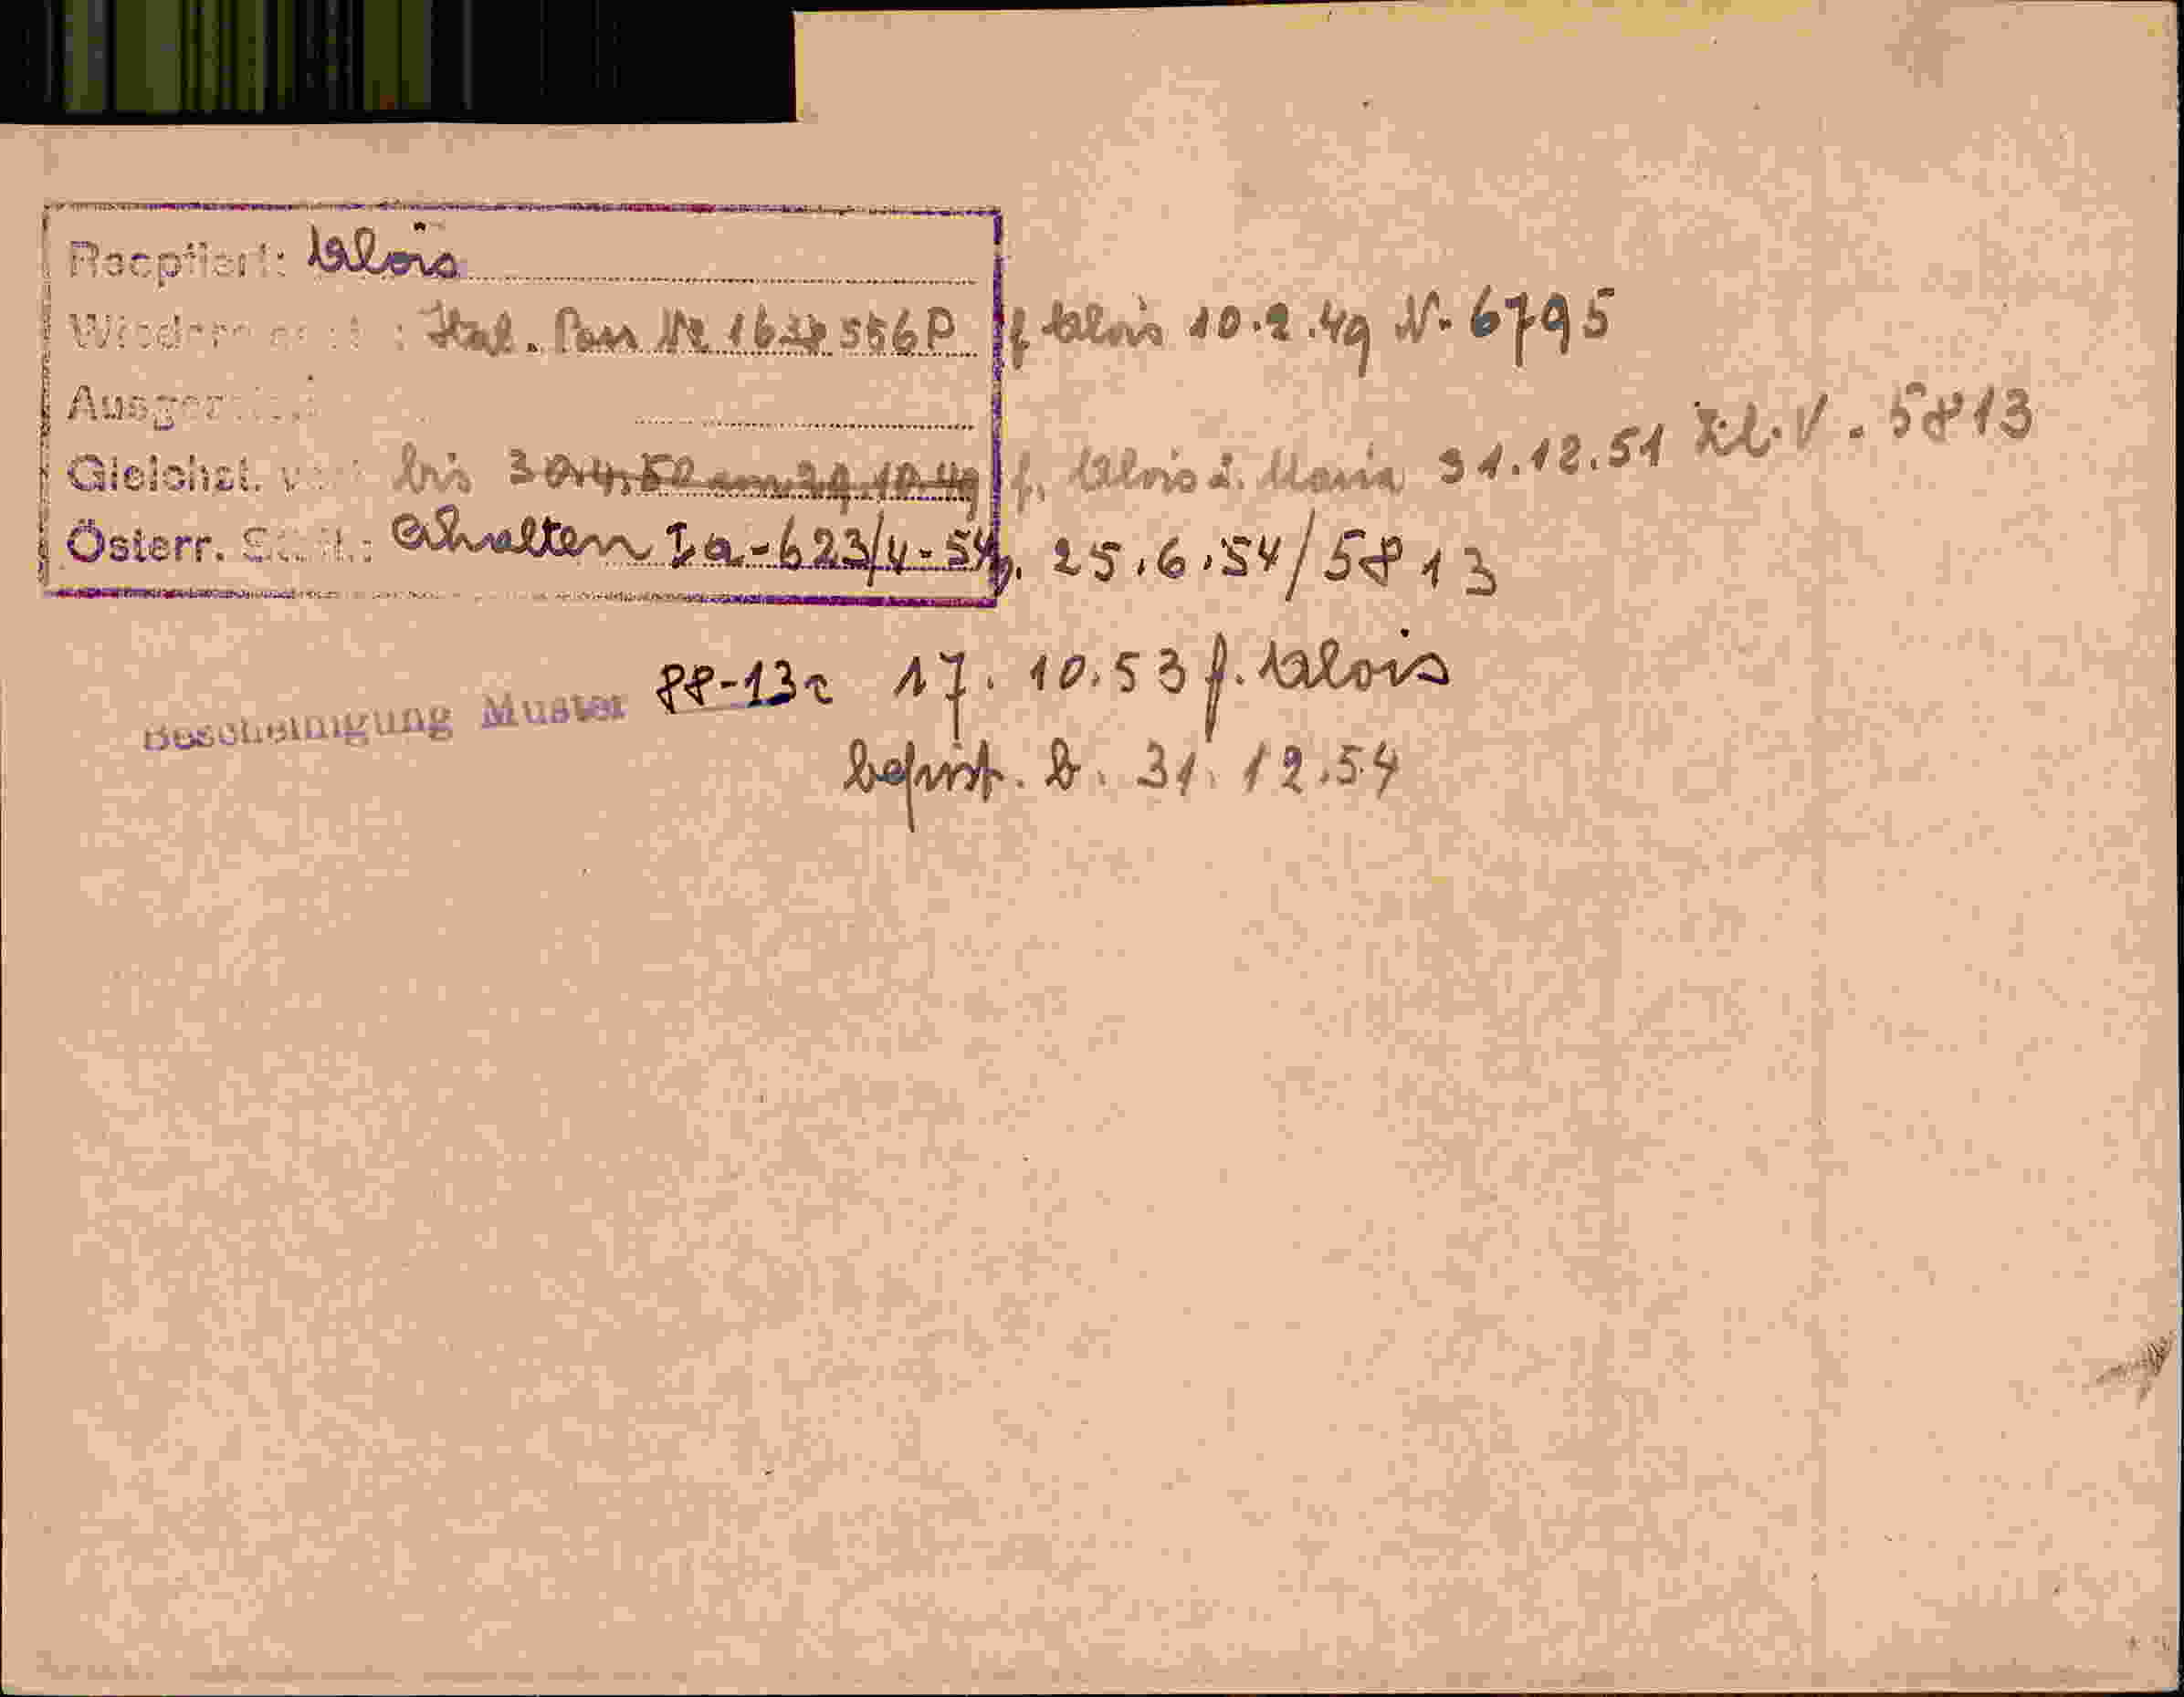 Reoptiert: Alois
Ital. Pass Nr 1628556P f Alois 10.2.49 N. 6795
Gleichst. bis 30.4.50 am 29.10.49 f. Alois u. Maria 31.12.51 Zl. V. 5813
Österr. Erhalten Ia-623/4-54 25.6.54/5813
Bescheinigung Muster 88-13c 17.10.53 f. Alois
befrist. b. 31.12.54